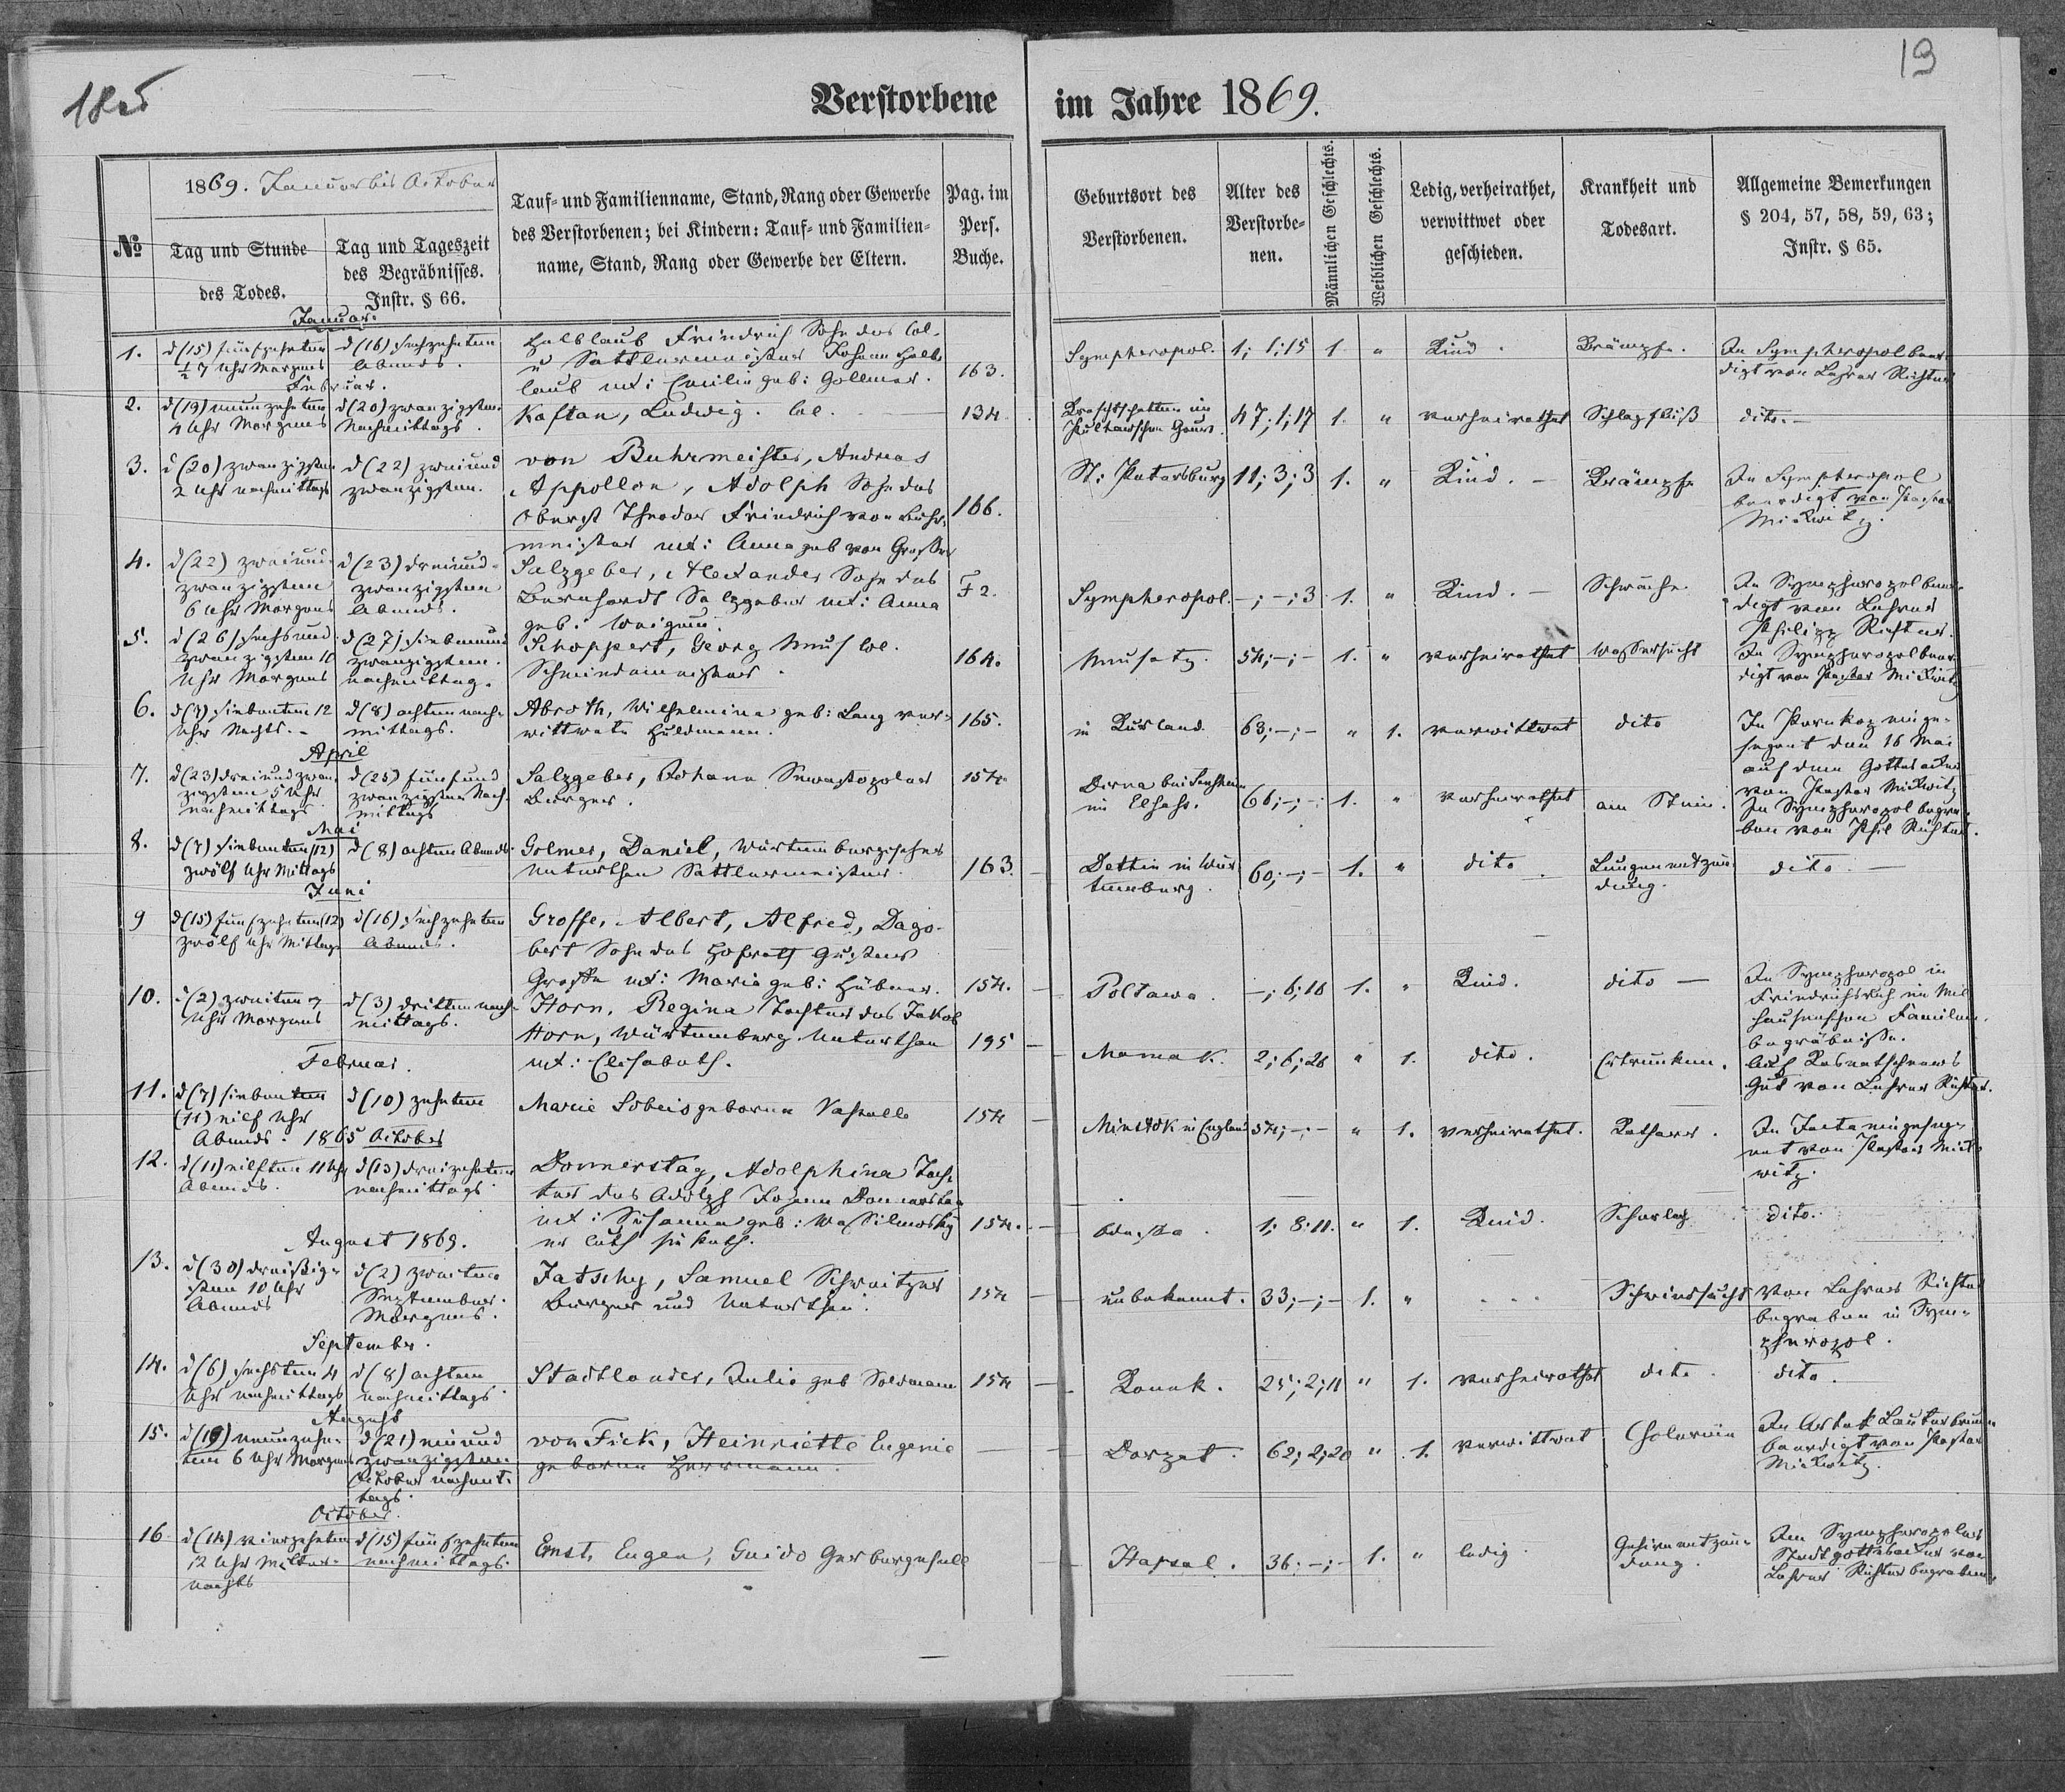 19
Verstorbene im Jahre 1869.
1869. Januar bis October
№
Tag und Stunde
des Todes.
Tag und Tageszeit
des Begräbnisses.
Instr. § 66.
Tauf- und Familienname, Stand, Rang oder Gewerbe
des Verstorbenen; bei Kindern: Tauf- und Familien-
name, Stand, Rang oder Gewerbe der Eltern.
Pag. im
Pers.
Buche.
Geburtsort des
Verstorbenen.
Alter des
Verstorbe-
nen.
Männlichen Geschlechts.
Weiblichen Geschlechts.
Ledig, verheirathet,
verwittwet oder
geschieden.
Krankheit und
Todesart.
Allgemeine Bemerkungen
§ 204, 57, 58, 59, 63;
Instr. § 65.
Januar.
1.
d (15) fünfzehnten
½ 7 Uhr Morgens
d (16) sechzehnten
Abends.
Halblaub Friedrich Sohn des Col.
u Sattlermeister Johann Halb-
laub ux: Emilie geb: Gollmer.
163.
Sympheropol.
1; 1; 15
1.
"
Kind.
Krämpfe.
In Sympheropol beer-
digt von Lehrer Richter
Februar.
2.
d (19) neunzehnten
4 Uhr Morgens
d (20) zwanzigsten
Nachmittags.
Kaftan, Ludwig. Col.
134.
im
Pultawschen Gouv.
47; 1; 17
1.
"
verheirathet
Schlagfluß
dito.-
3.
d (20) zwanzigsten
2 Uhr nachmittags
d (22) zweiund
zwanzigsten.
von Buhrmeister, Andreas
Appollon, Adolph Sohn des
Oberst Theodor Friedrich von Buhr-
meister ux: Anna geb von Grosse
166.
St: Petersburg
11; 3; 3
1.
"
Kind. -
Krämpfe
In Sympheropol
beerdigt von Pastor
Mickwitz.
4.
d (22) zweiund
zwanzigsten
6 Uhr Morgens
d (23) dreiund-
zwanzigsten
Abends.
Salzgeber, Alexander Sohn des
Bernhardt Salzgeber ux: Anna
geb:
F 2.
Sympheropol.
-; -; 3
1.
"
Kind. -
Schwäche.
In Sympheropol beer-
digt vom Lehrer
Philipp Richter.
5.
d (26) sechsund
zwanzigsten 10
Uhr Morgens
d (27) siebenund
zwanzigsten.
nachmittag.
Schoppert, Georg Neus Col.
Schmiedemeister.
164.
Neusatz.
54; -; -
1.
"
verheirathet
Wassersucht
In Sympheropol beer-
digt von Pastor Mickwitz
6.
d (7) siebenten 12
Uhr Nachts. -
d (8) achten nach-
mittags.
Abroth, Wilhelmina geb: Lang ver-
wittwete Huldmann.
165.
in Kurland.
63; -; -
"
1.
verwittwet
dito
In Perekop einge-
segnet den 16 Mai
auf dem Gottesacker
von Pastor Mickwitz
April
7.
d (23) dreiundzwan
zigsten 5 Uhr
nachmittags
d (25) fünfund
zwanzigsten Nach-
mittags
Salzgeber, Johann Sewastopoler
Bürger.
154.
im Elsass.
66; -; -
1.
"
verheirathet
am Stein.
In Sympheropol begra-
ben von Phil Richter.
Mai
8.
d (7) siebenten (12)
zwölf Uhr Mittags
d (8) achten Abends.
Golmer, Daniel, Würtembergscher
Unterthan Sattlermeister.
163.
Dettin in Wür
temberg.
60; -; -
1.
"
dito
Lungenentzün
dung.
dito. -
Juni
9
d (15) fünfzehnten (12)
zwölf Uhr Mittags
d (16) sechzehnten
Abends.
Grosse, Albert, Alfred, Dago-
bert Sohn des Hofrath Gustav
Grosse ux: Maria geb: Hübner.
154.
Poltawa.
-; 6; 16
1.
"
Kind.
dito -
In Sympheropol in
Friedrichsruh im Mil
hausenschen Familien-
begräbnisse.
10.
d (2) zweiten 9
Uhr Morgens
d (3) dritten nach-
mittags.
Horn, Regina Tochter des Jakob
Horn, Würtemberg. Unterthan
ux: Elisabeth.
195
Mamak.
2; 6; 26
"
1.
dito.
Ertrunken.
Auf
Gut von Lehrer Richter.
Februar.
11.
d (7) siebenten
(11) eilf Uhr
Abends.
d (10) zehnten
Marie Sobeis geborene Vassallo
154
in England
54; -; -
"
1.
verheirathet.
Katharr.
In Jalta eingeseg-
net von Pastor Mick-
witz.
1865 October
12.
d (11) eilften 11 Uhr
Abends.
d (13) dreizehnten
nachmittags.
Donnerstag, Adolphina Toch-
ter des Adolph Johann Donnerstag
ux: Susanna geb: Wassilewsky
er luth sie kath.
154.
Odessa.
1; 8; 11.
"
1.
Kind.
Scharlach
dito.
August 1869.
13.
d (30) dreißig-
sten 10 Uhr
Abends
d (2) zweiten
September.
Morgens.
Jatschy, Samuel Schweitzer
Bürger und Unterthan.
154
unbekannt.
33; -; -
1.
"
Schwindsucht
Von Lehrer Richter
begraben in Sym-
pheropol.
September.
14.
d (6) sechsten 4
Uhr nachmittags
d (8) achten
nachmittags.
Stadtlander, Julie geb Soldmann
154
25; 2; 11
"
1.
verheirathet
dito.
dito.
August
15.
d (19) neunzehn-
ten 6 Uhr Morgens
d (21) einund
zwanzigsten
October nachmit-
tags.
von Fick, Heinriette Eugenie
geborene Herrmann.
Dorpat.
62; 2; 20
"
1.
Verwittwet
Cholerine
beerdigt von Pastor
Mickwitz.
October.
16
d (14) vierzehnten
12 Uhr Mitter-
nachts
d (15) fünfzehnten
nachmittags.
Ernst, Eugen, Guido Gerbergesell
Hapsal.
36. -; -
1.
"
ledig.
Gehirnentzün-
dung.
Am Sympheropoler
Stadtgottesacker von
Lehrer Richter begraben.